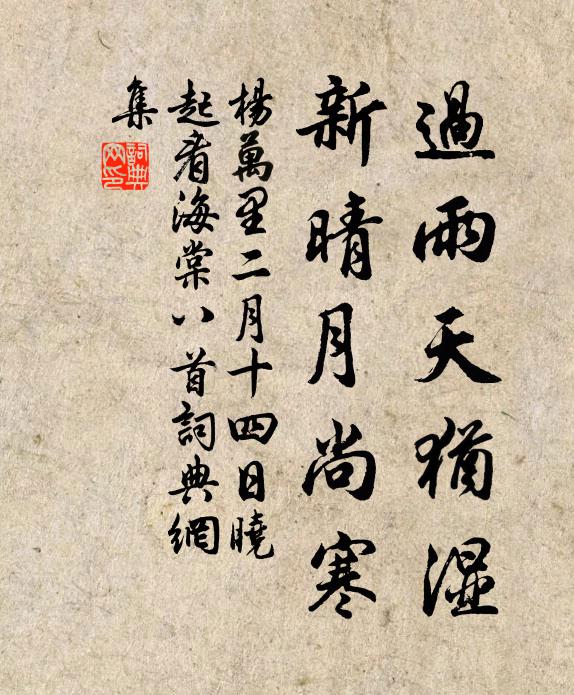 過雨天猶濕
新晴月尚寒
楊萬里二月十四日曉
起看海棠八首詞典網
集
詞典
网印